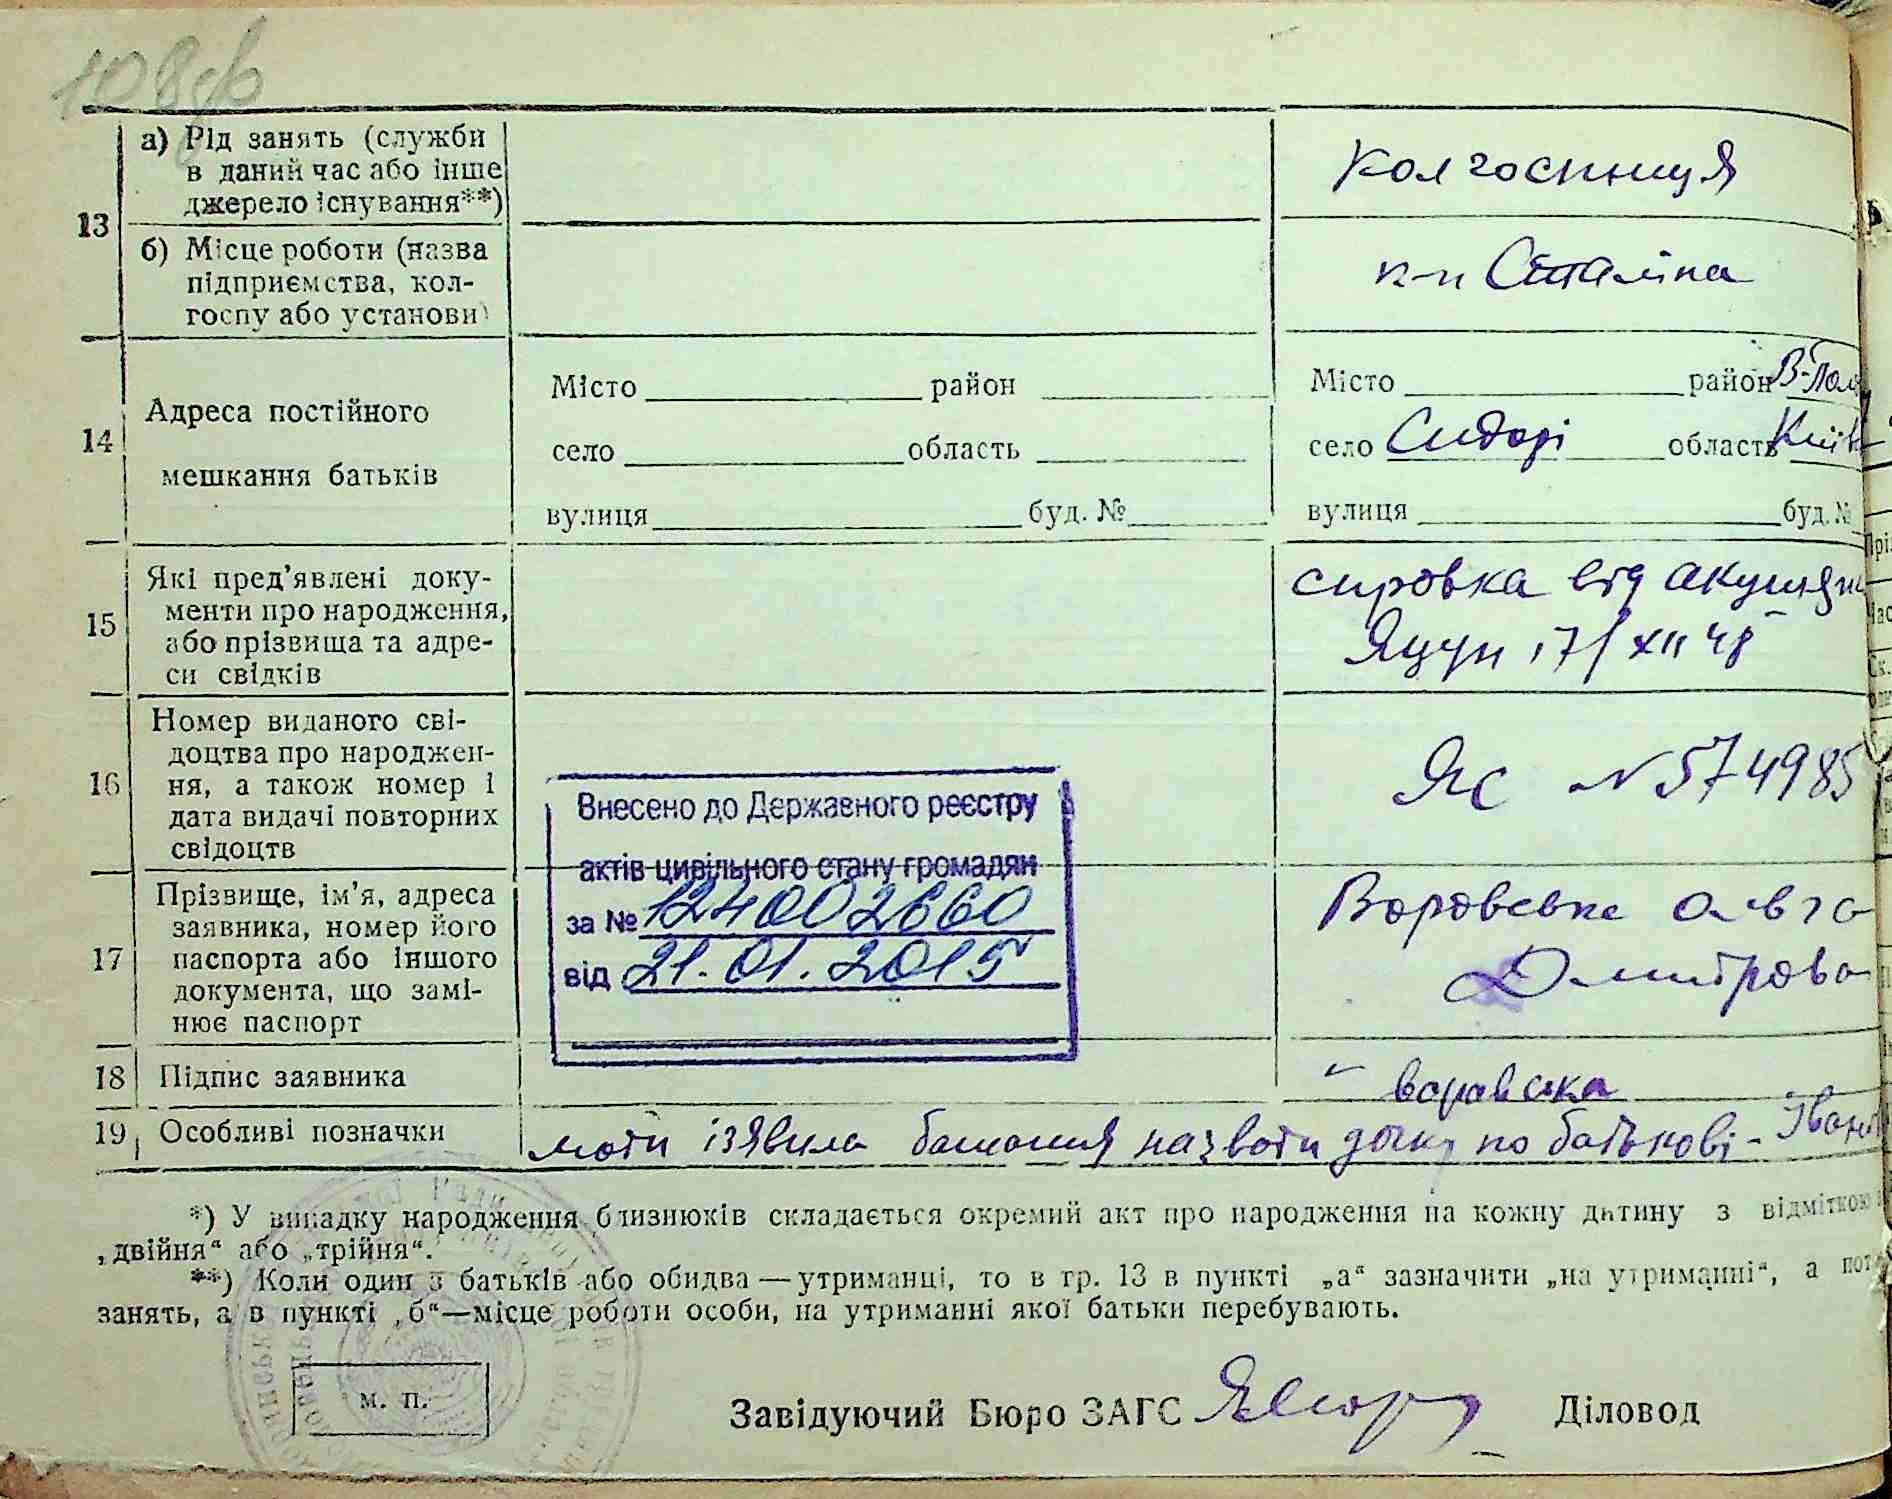 108зв
13
а) Рід занять (служби
в даний час або інше
джерело існування**)
колгоспниця
б) Місце роботи (назва
підприємства, кол-
госпу або установи)
к-п Сталіна
14
Адреса постійного
мешкання батьків
Місто район
село область
вулиця буд. №
Місто район В-Пол
село Сидорі область Київ
вулиця буд. №
15
Які пред'явлені доку-
менти про народження,
або прізвища та адре-
си свідків
справка від акушерки
Яцун 17/XII 48
16
Номер виданого сві-
доцтва про народжен-
ня, а також номер і
дата видачі повторних
свідоцтв
ЯС N 574985
Внесено до Державного реєстру
актів цивільного стану громадян
за № 124002660
від 21.01.2015
17
Прізвище, ім'я, адреса
заявника, номер його
паспорта або іншого
документа, що замі-
нює паспорт
Ольга
Дмитрова
18 Підпис заявника
19 Особливі позначки
мати ізявила бажання назвати дочку по батькові - Іван
*) У випадку народження близнюків складається окремий акт про народження на кожну дитину з відміткою
„двійня“ або „трійня“.
**) Коли один з батьків або обидва — утриманці, то в гр. 13 в пункті „а“ зазначити „на утриманні“, а
занять, а в пункті „б“—місце роботи особи, на утриманні якої батьки перебувають.
М. П.
Завідуючий Бюро ЗАГС Діловод